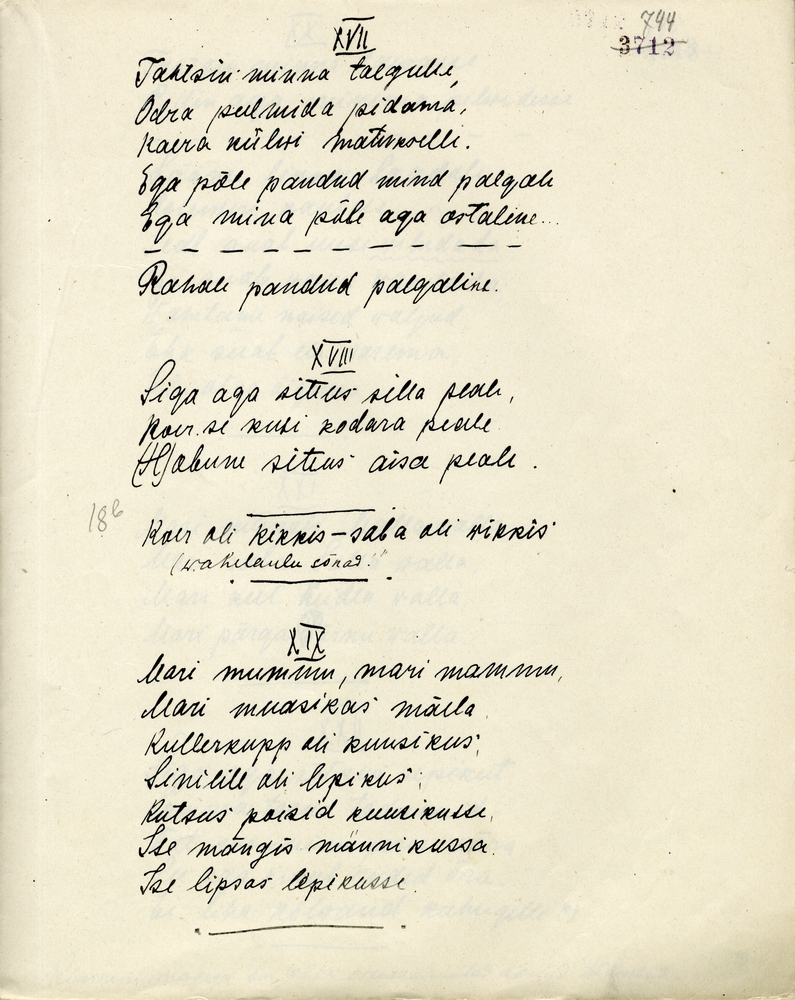 744
3712
XVII
Tahtsin minna talgulle,
Odra pulmida pidama,
Kaera külwi
Ega põle pandud mind palgale
Ega mina põle aga ostaline...
Rahale pandud palgaline.
XVIII
Siga aga sittus silla peale,
Koer se kusi kodara peale
(H)obune sittus aisa peale.
18b
Koer oli kikkis – saba oli wikkis
(wahelaulu sõnad!"
XIX
Mari mummu, mari mammu,
Mari muasikas mäella
Kullerkupp oli kuusikus,
Sinilill oli lepikus,
Kutsus poisid kuusikusse,
Ise mängis männikussa.
Ise lipsas lepikusse.